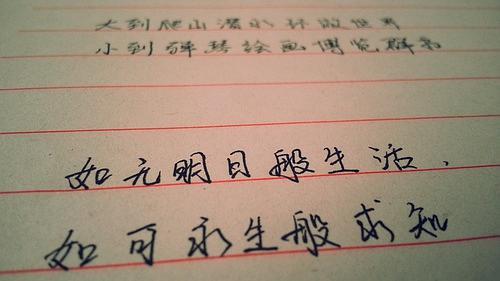 大到爬山潜水环游世界
小到弹琴绘画博览群书
如元明日般生活.
如可永生般求知